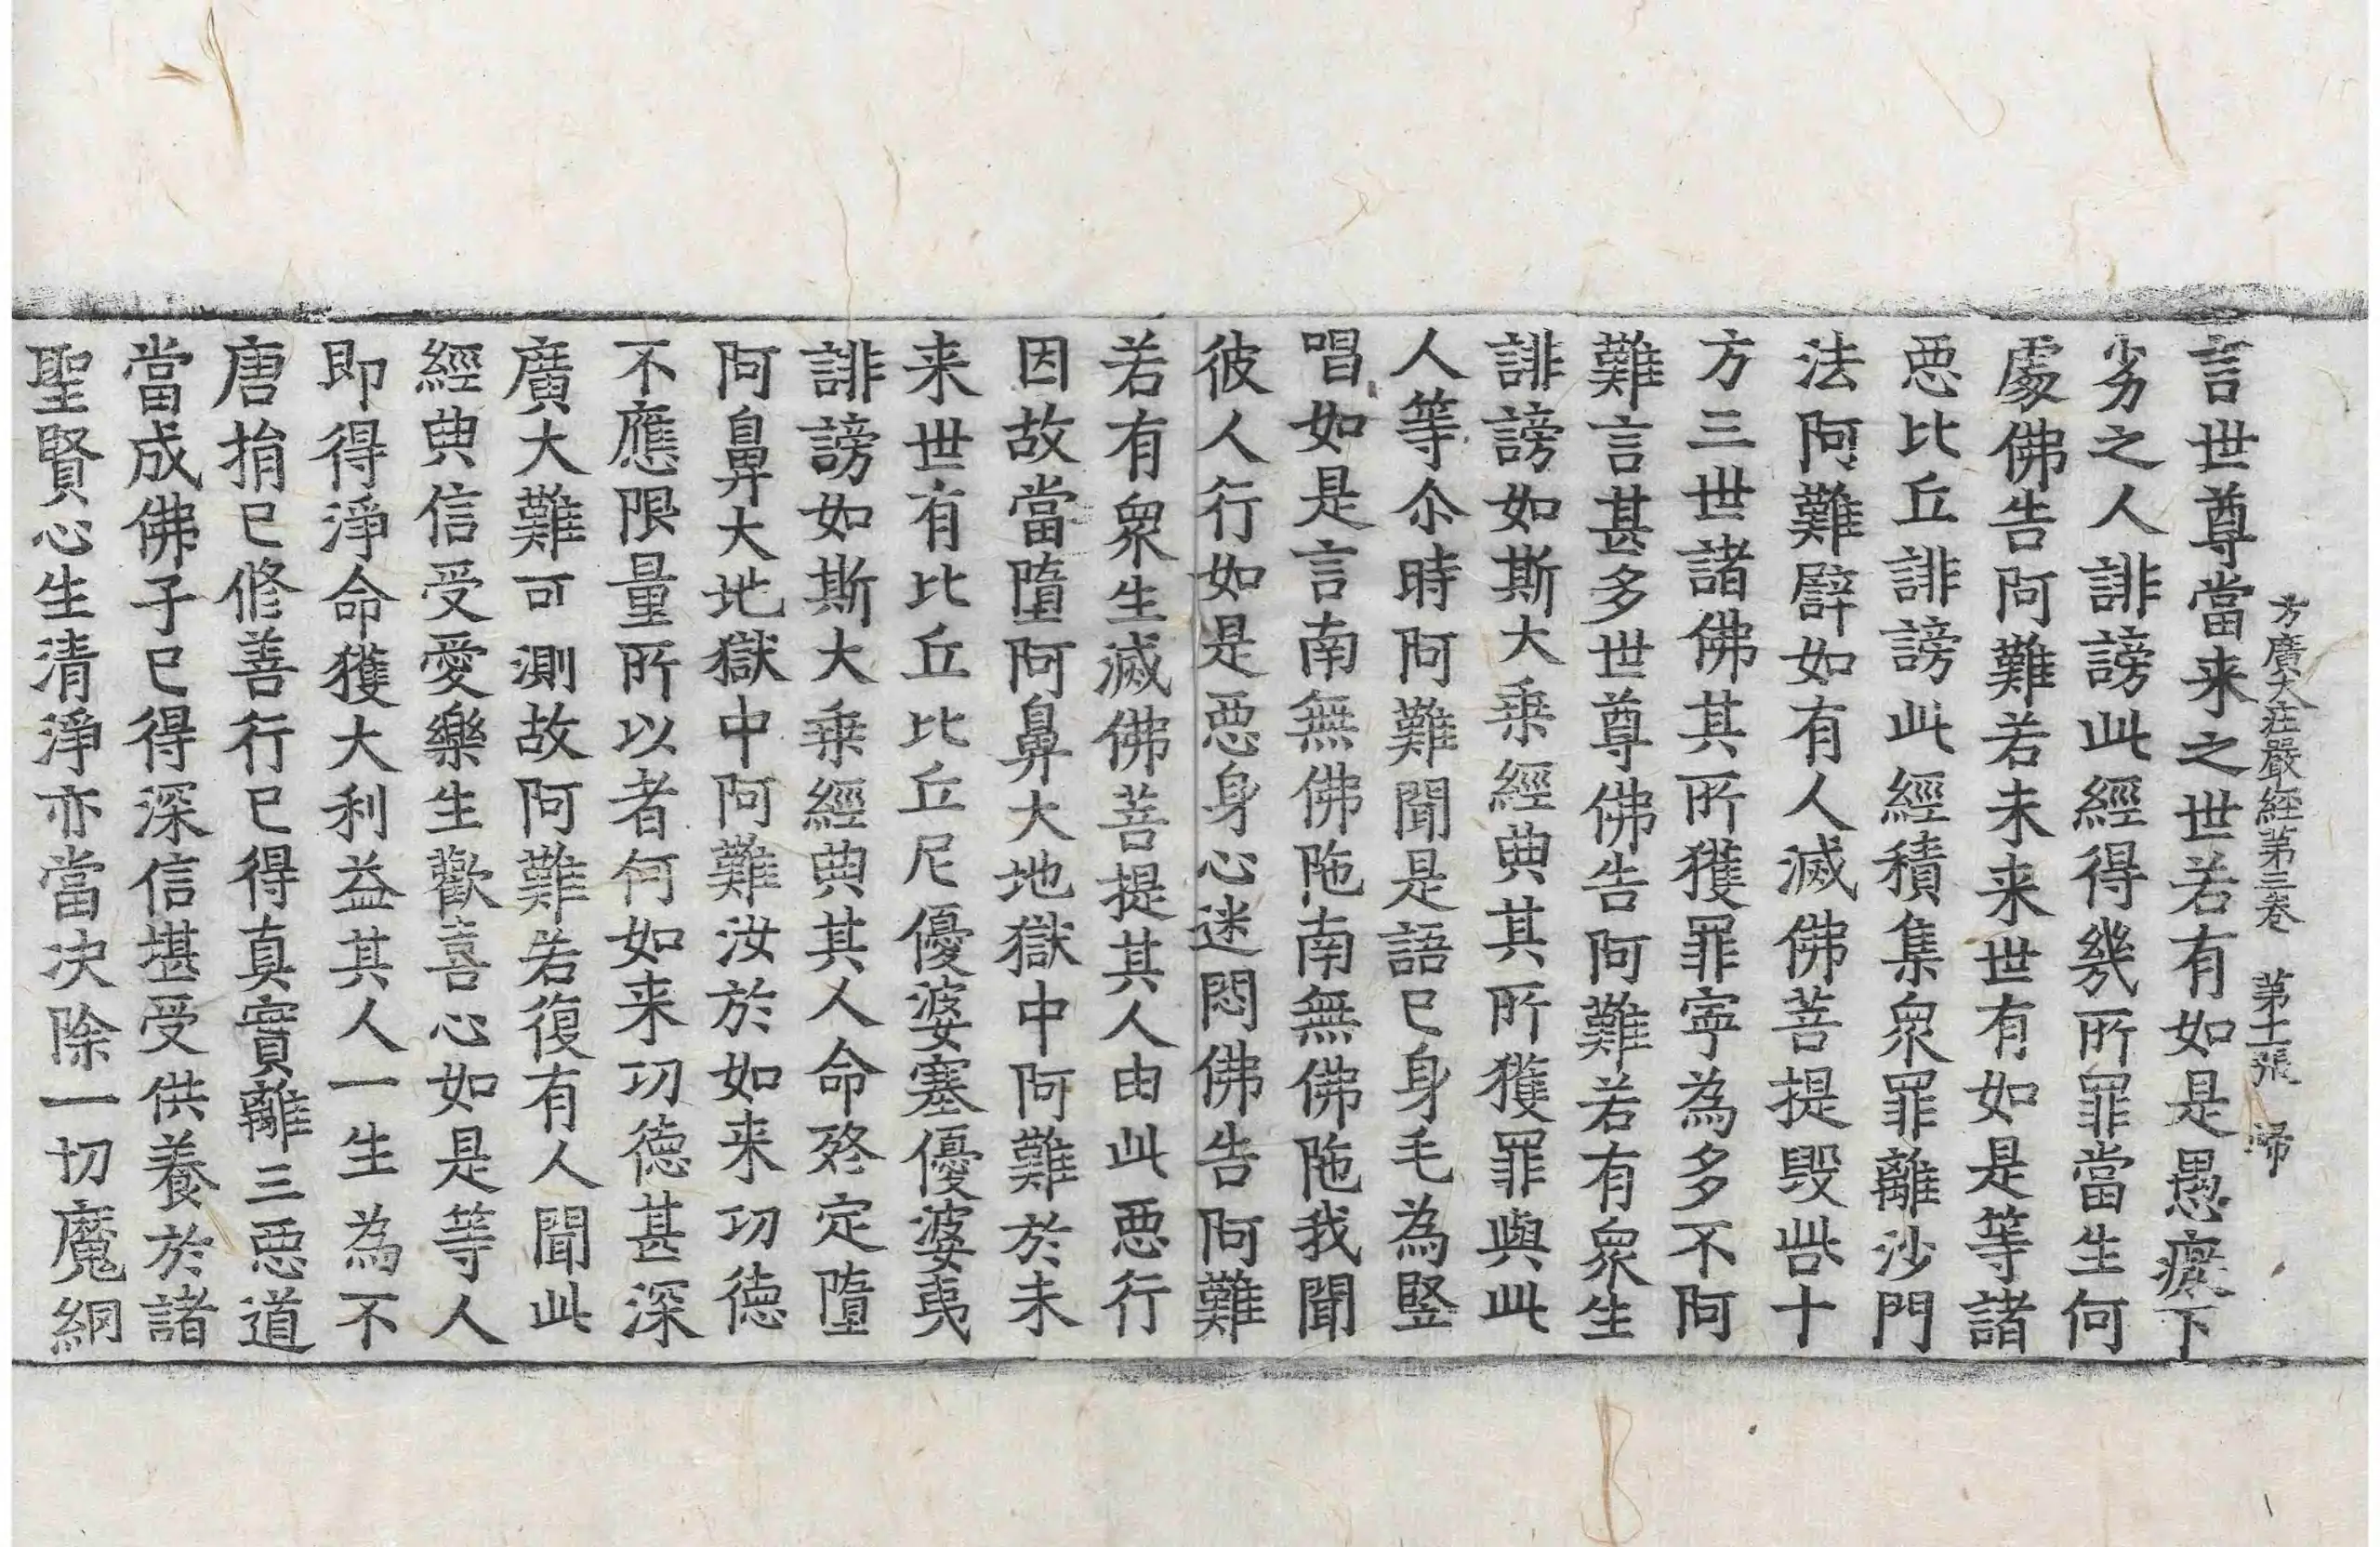 方廣大莊嚴經第三卷　第十二張　歸
言世尊當来之世若有如是愚癡下
劣之人誹謗此經得幾所罪當生何
處佛告阿難若未来世有如是等諸
惡比丘誹謗此經積集衆罪離沙門
法阿難譬如有人滅佛菩提毀呰十
方三世諸佛其所獲罪寧為多不阿
難言甚多世尊佛告阿難若有衆生
誹謗如斯大乗經典其所獲罪與此
人等尒時阿難聞是語已身毛為竪
唱如是言南無佛陁南無佛陁我聞
彼人行如是惡身心迷悶佛告阿難
若有衆生滅佛菩提其人由此惡行
因故當墮阿鼻大地獄中阿難於未
来世有比丘比丘尼優婆塞優婆夷
誹謗如斯大乗經典其人命終定墮
阿鼻大地獄中阿難汝於如来功德
不應限量所以者何如来功德甚深
廣大難可測故阿難若復有人聞此
經典信受愛樂生歡喜心如是等人
即得淨命獲大利益其人一生為不
唐捐已修善行已得真實離三惡道
當成佛子已得深信堪受供養於諸
聖賢心生清淨亦當决除一切魔網